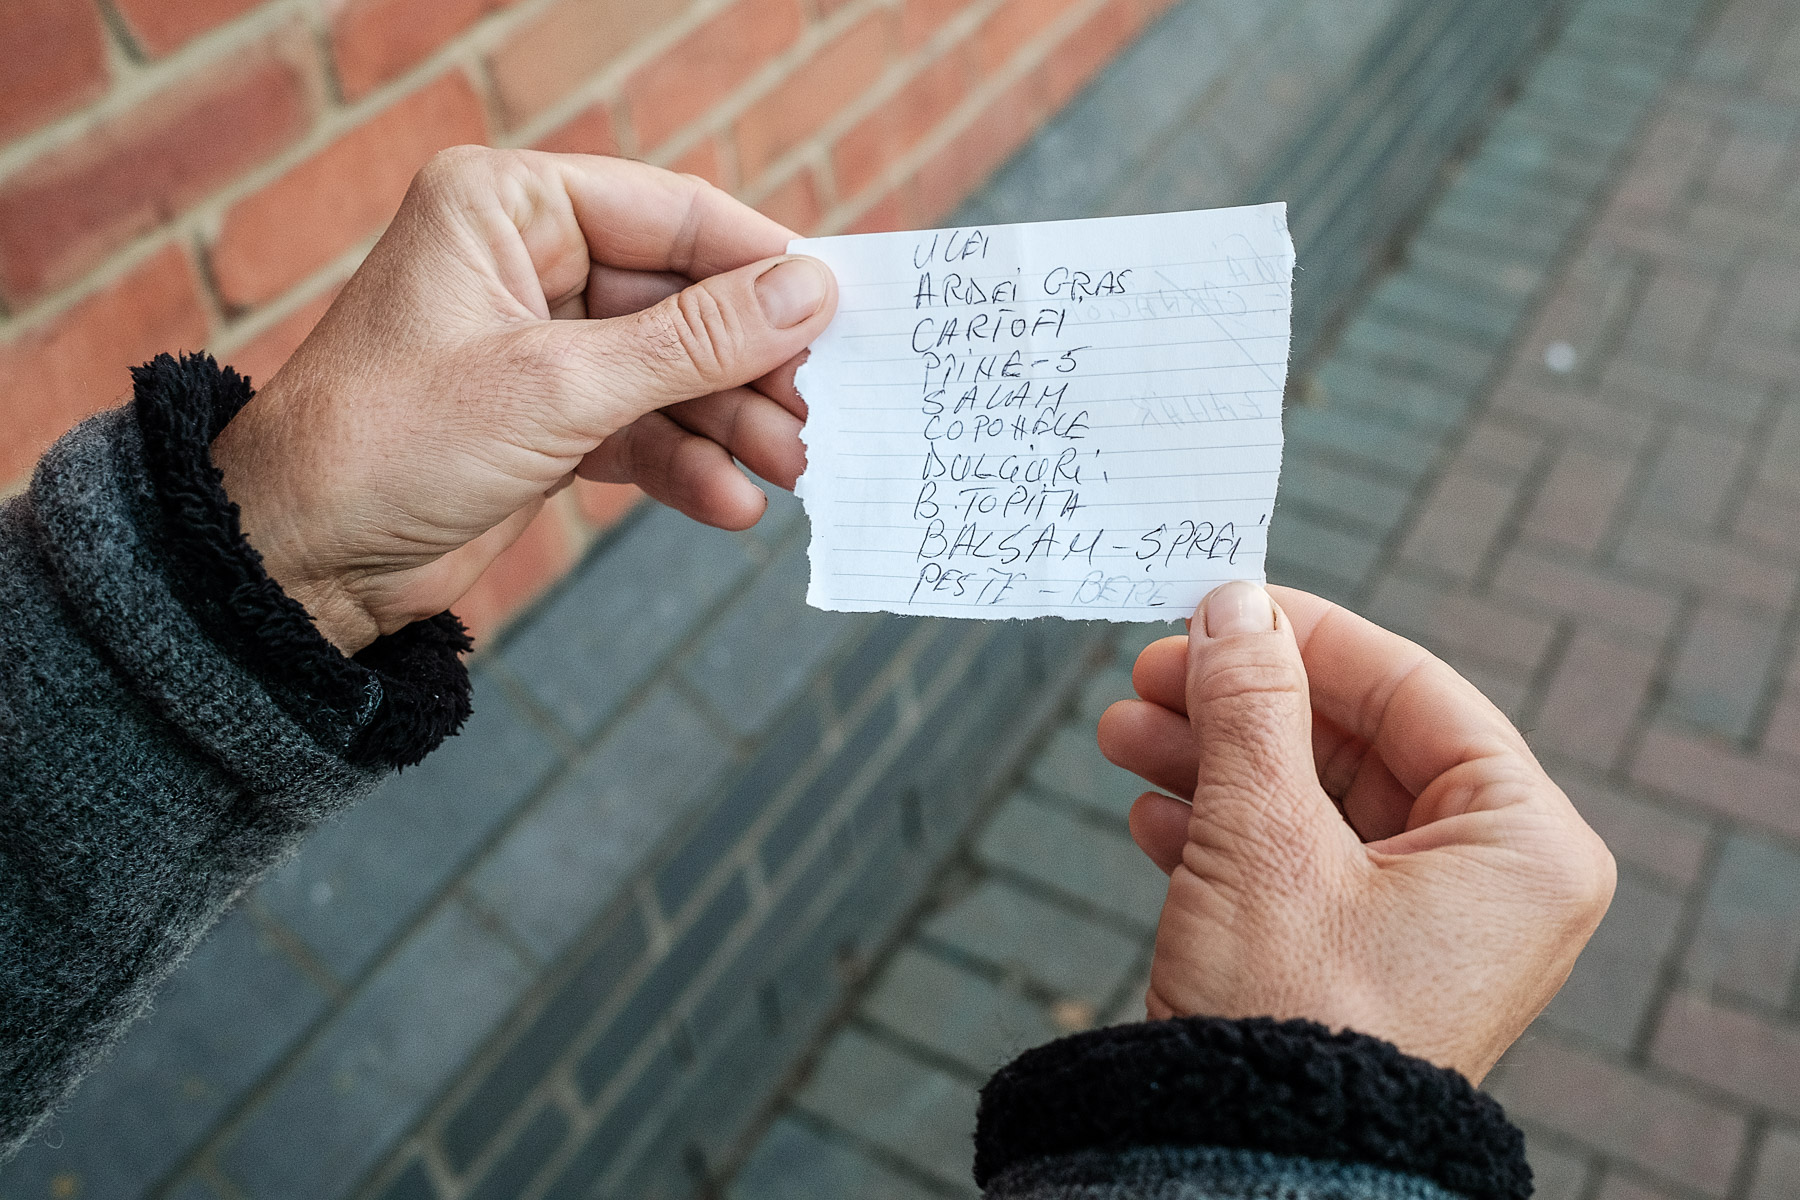 ULEI
ARDEI GRAS
CARTOFI
PÎINE-5
SALAM
COPONELE
DULCIURI
B.TOPITA
BALSAM-ȘPREI
PESTE - BERE